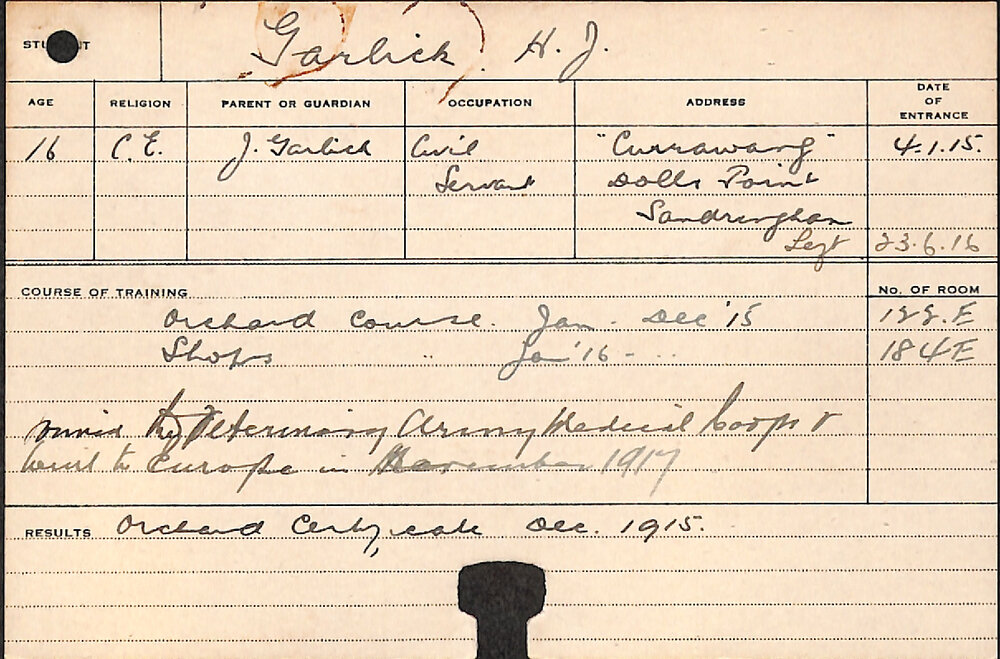 STUDENT Garlick H. J.
AGE RELIGION PARENT OR GUARDIAN OCCUPATION ADDRESS DATE OF ENTRANCE
16 C.E. J. Garlick Civil "Currawang" 4.1.15.
Servant Dolls Point
Sandringham
Left 23.6.16
COURSE OF TRAINING No. OF ROOM
Orchard Course. Jan - Dec '15 122.E
Shops " Jan '16 - ...
184E
Veterinary Army Medical Corps &
went to Europe in November 1917
RESULTS Orchard Certificate Dec. 1915.